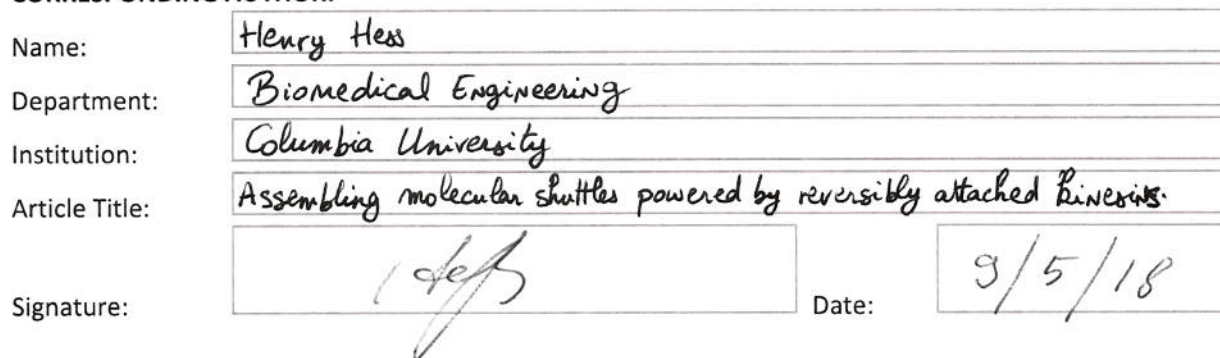 CORRESPONDING AUTHOR:
Name: Henry Hess
Department: Biomedical Engineering
Institution: Columbia University
Article Title: Assembling molecular shuttles powered by reversibly attached kinesins.
Signature: Date: 9/5/18